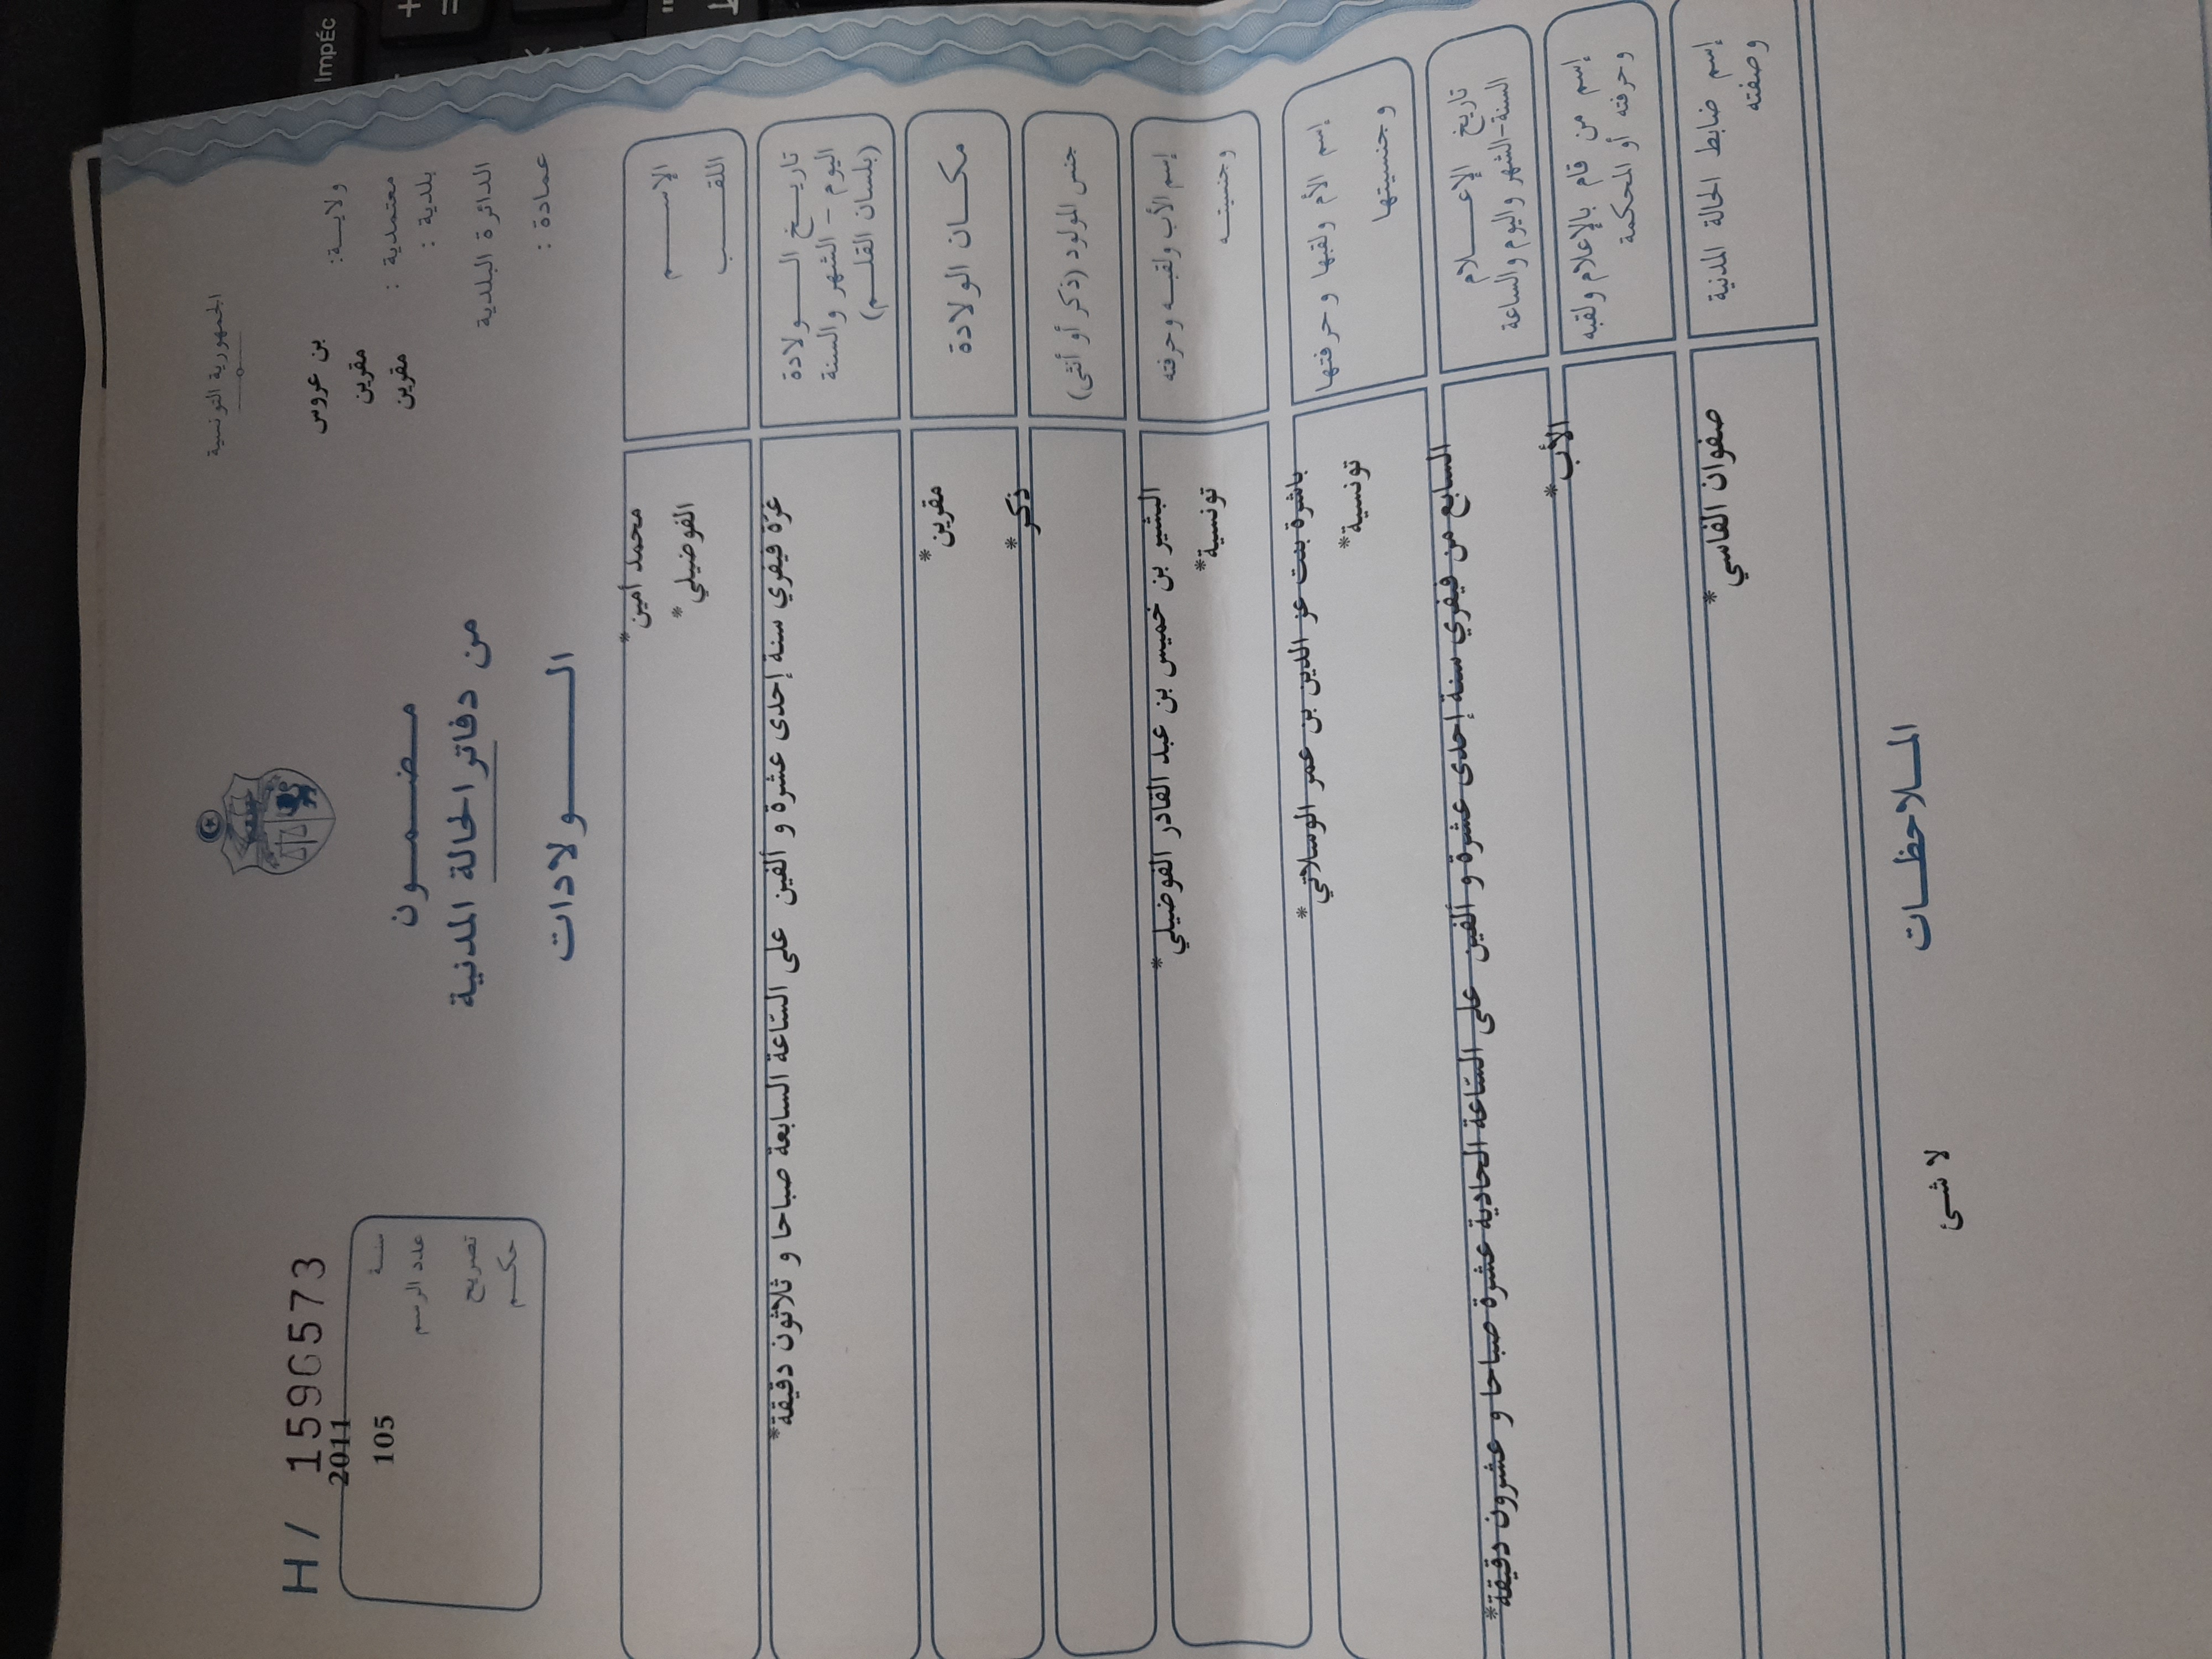 ImpÉc
الجمهورية التونسية
ولايــة: بن عروس
معتمدية : مقرين
بلدية : مقرين
الدائرة البلدية
عمادة :
H/ 1596573
سنــة 2011
عدد الرسم 105
تصريح
حكــم
مـــضـــمـــون
من دفاتر الحالة المدنية
الـــــولادات
الإســـــم محمد أمين*
اللقـــــب الفوضيلي*
تاريـــخ الـــولادة غرّة فيفري سنة إحدى عشرة و ألفين على السّاعة السابعة صباحا و ثلاثون دقيقة*
اليوم - الشهر والسنة
(بلسان القلـــم)
مكـــان الولادة مقرين*
جنس المولود (ذكر أو أنثى) ذكر*
إسم الأب ولقبــه وحرفته البشير بن خميس بن عبد القادر الفوضيلي*
وجنسيتــه تونسية*
إسم الأم ولقبها وحرفتها باشرة بنت عز الدين بن عمر الوسلاتي*
وجنسيتها تونسية*
تاريخ الإعـــلام السابع من فيفري سنة إحدى عشرة و ألفين على السّاعة الحادية عشرة صباحا و عشرون دقيقة*
السنة-الشهر واليوم والساعة
إسم من قام بالإعلام ولقبه الأب*
وحرفته أو المحكمة
إسم ضابط الحالة المدنية صفوان الفاسي*
وصفته
المـــلاحظـــات
لا شئ